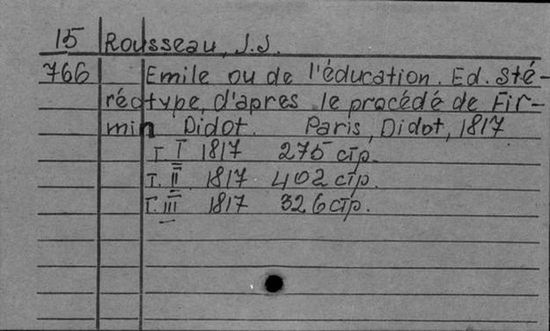 15 Rousseau, J.J.
766 Emile ou de l'éducation. Ed. sté-
réotype, d'apres le procédé de Fir-
min Didot. Paris, Didot, 1817
т. I 1817 275 стр.
т. II 1817 402 стр.
т. III 1817 326 стр.